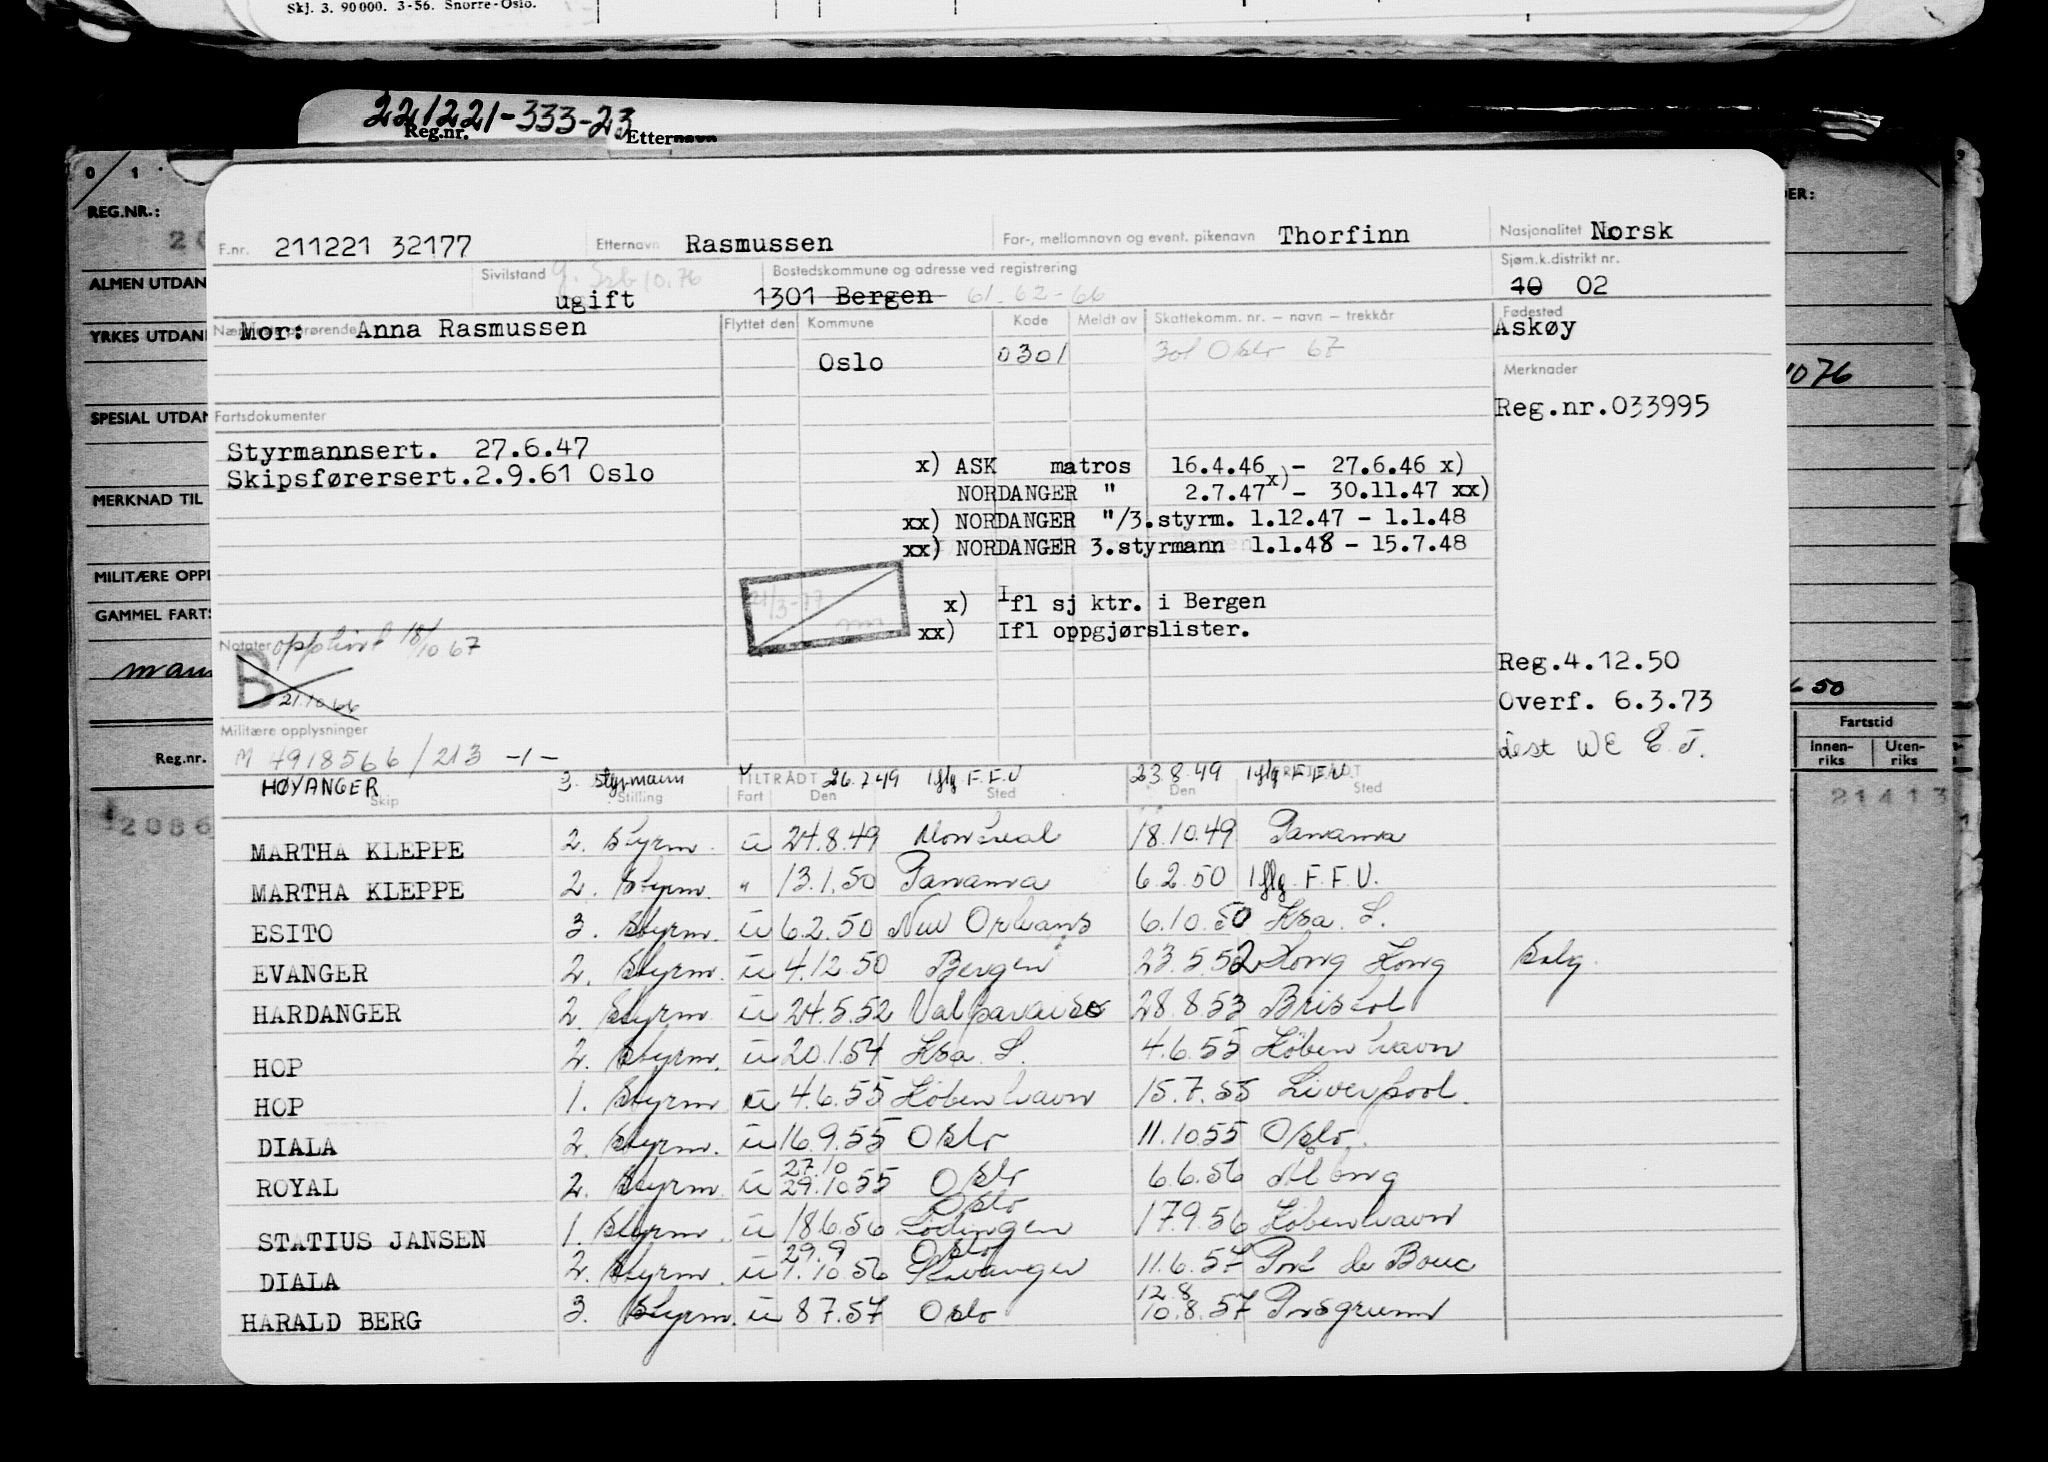 Skj. 3. 90000. 3-56. Snorre-Oslo.
221221-333-23
Reg.nr. Etternavn
0 1
REG.NR.:
ALMEN UTDAN
YRKES UTDAN
SPESIAL UTDAN
MERKNAD TIL
MILITÆRE OPPL
GAMMEL FARTS
Reg.nr.
F.nr. 211221 32177 Etternavn Rasmussen For-, mellomnavn og event. pikenavn Thorfinn Nasjonalitet Norsk
Sivilstand ugift g. Seb 10.76 Bostedskommune og adresse ved registrering 1301 Bergen 61-62-66 Sjøm.k.distrikt nr. 10 02
Nærmeste pårørende Mor: Anna Rasmussen Flyttet den Kommune Kode Meldt av Skattekomm. nr. – navn – trekkår Fødested Askøy
Oslo 0301 301 Oslo 67
Merknader
1076
Reg.nr.033995
Fartsdokumenter
Styrmannsert. 27.6.47
Skipsførersert.2.9.61 Oslo
x) ASK matros 16.4.46 – 27.6.46 x)
NORDANGER " 2.7.47 x) – 30.11.47 xx)
xx) NORDANGER "/3.styrm. 1.12.47 – 1.1.48
xx) NORDANGER 3.styrmann 1.1.48 – 15.7.48
21/3-77
x) Ifl sj ktr. i Bergen
xx) Ifl oppgjørslister.
Notater
18/10 67
B
21.10 66
Reg.4.12.50
Overf. 6.3.73
50
Militære opplysninger
M 4918566/213 -1-
Fartstid
Innenriks Utenriks
21413
2086
HØYANGER 3. Styrmann TILTRÅDT 26.7.49 Iflg F.F.V 23.8.49 Iflg F.F.V.
Skip Stilling Fart Den Sted FRATRÅDT Den Sted
MARTHA KLEPPE 2. Styrm. u 24.8.49 Montreal 18.10.49 Panama
MARTHA KLEPPE 2. Styrm. " 13.1.50 Panama 6.2.50 Iflg. F.F.V.
ESITO 3. Styrm. u 6.2.50 New Orleans 6.10.50 Kra. S.
EVANGER 2. Styrm. u 4.12.50 Bergen 23.5.52 Hong Kong Salg.
HARDANGER 2. Styrm. u 24.5.52 Valparaiso 28.8.53 Bristol
HOP 2. Styrm. u 20.1.54 Kra. S. 4.6.55 København
HOP 1. Styrm u 4.6.55 København 15.7.55 Liverpool.
DIALA 2. Styrm. u 16.9.55 Oslo 11.10.55 Oslo.
ROYAL 2. Styrm. u 27.10 29.10.55 Oslo 6.6.56 Ålborg
STATIUS JANSEN 1. Styrm. u 18.6.56 Oslo Lødingen 17.9.56 København
DIALA 2. Styrm. u 29.9 1.10.56 Oslo Stavanger 11.6.57 Port de Bouc
HARALD BERG 3. Styrm. u 8.7.57 Oslo 12.8 10.8.57 Porsgrunn